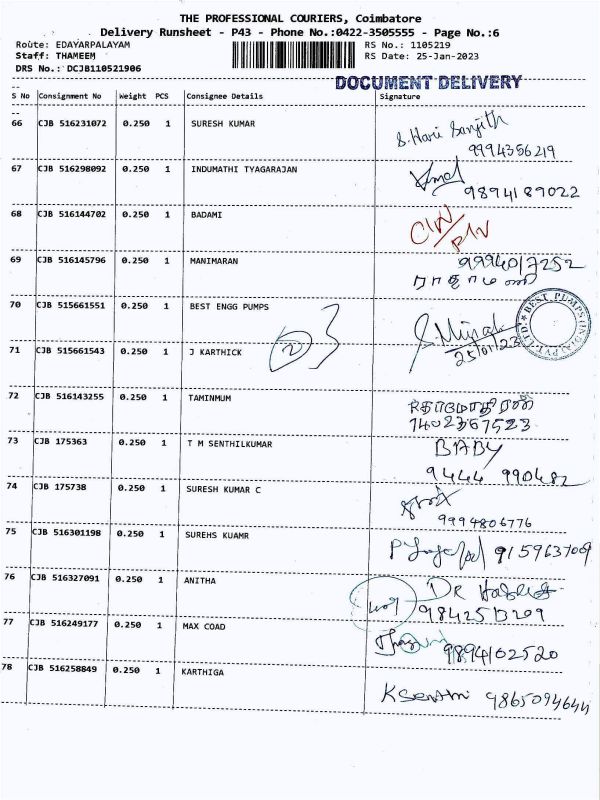 THE PROFESSIONAL COURIERS, Coimbatore
Delivery Runsheet - P43 - Phone No.:0422-3505555 - Page No.:6
Route: EDAYARPALAYAM RS No.: 1105219
Staff: THAMEEM RS Date: 25-Jan-2023
DRS No.: DCJB110521906
DOCUMENT DELIVERY
--
S No Consignment No Weight PCS Consignee Details Signature
--
66 CJB 516231072 0.250 1 SURESH KUMAR S. Hari Sanjith
9994356219
67 CJB 516298092 0.250 1 INDUMATHI TYAGARAJAN
9894189022
68 CJB 516144702 0.250 1 BADAMI
69 CJB 516145796 0.250 1 MANIMARAN 9994017252
ராஜாமணி
70 CJB 515661551 0.250 1 BEST ENGG PUMPS
BEST PUMPS (INDIA) PVT. LTD.
25/01/23
71 CJB 515661543 0.250 1 J KARTHICK 2
72 CJB 516143255 0.250 1 TAMINMUM
7402367523
73 CJB 175363 0.250 1 T M SENTHILKUMAR BABY
9444 990482
74 CJB 175738 0.250 1 SURESH KUMAR C
9994806776
75 CJB 516301198 0.250 1 SUREHS KUAMR
9159637069
76 CJB 516327091 0.250 1 ANITHA DR
9842513209
77 CJB 516249177 0.250 1 MAX COAD
9894102520
78 CJB 516258849 0.250 1 KARTHIGA
9865094644